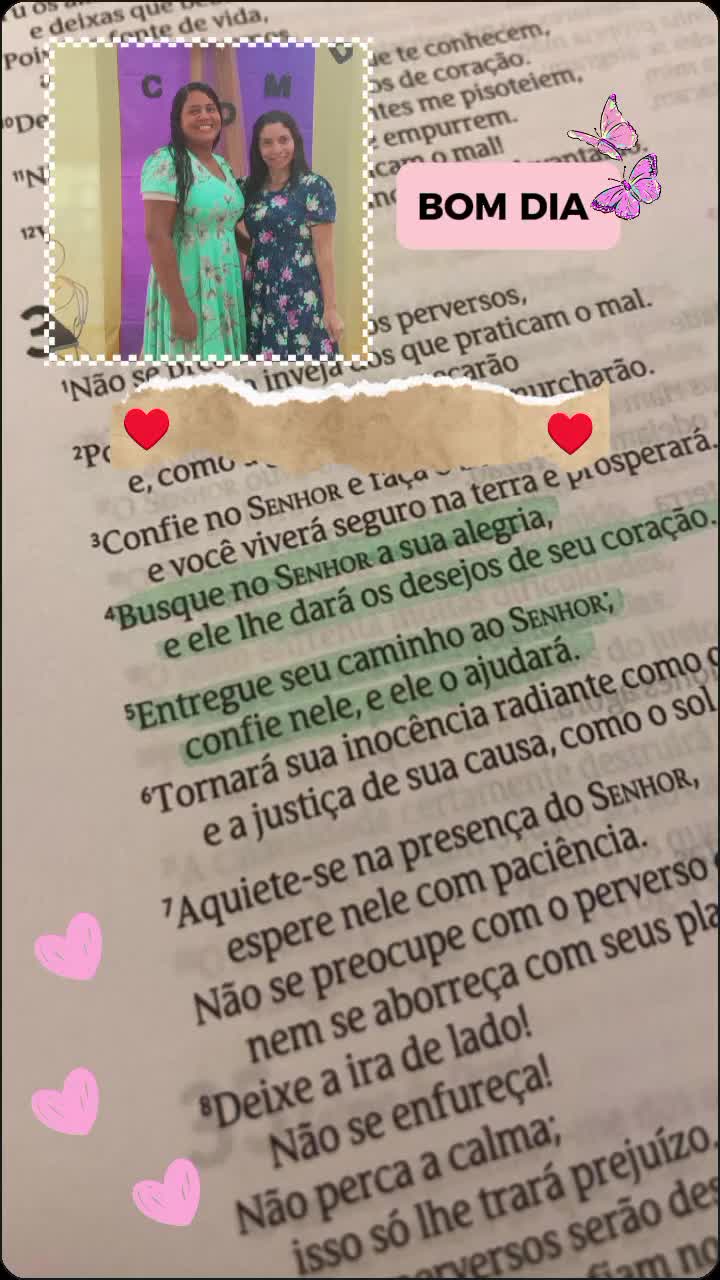 e deixas que
Pois fonte de vida,
ue te conhecem,
os de coração.
ntes me pisoteiem,
empurrem.
cam o mal!
C M
BOM DIA
os perversos,
¹Não se inveja dos que praticam o mal.
murcharão.
e, como
³Confie no SENHOR e faça o
e você viverá seguro na terra e prosperará.
⁴Busque no SENHOR a sua alegria,
e ele lhe dará os desejos de seu coração.
⁵Entregue seu caminho ao SENHOR;
confie nele, e ele o ajudará.
⁶Tornará sua inocência radiante como
e a justiça de sua causa, como o sol
⁷Aquiete-se na presença do SENHOR,
espere nele com paciência.
Não se preocupe com o perverso
nem se aborreça com seus pla
⁸Deixe a ira de lado!
Não se enfureça!
Não perca a calma;
isso só lhe trará prejuízo.
perversos serão des